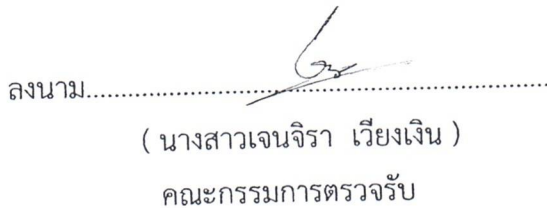 ลงนาม..........................................................................
( นางสาวเจนจิรา เวียงเงิน )
คณะกรรมการตรวจรับ